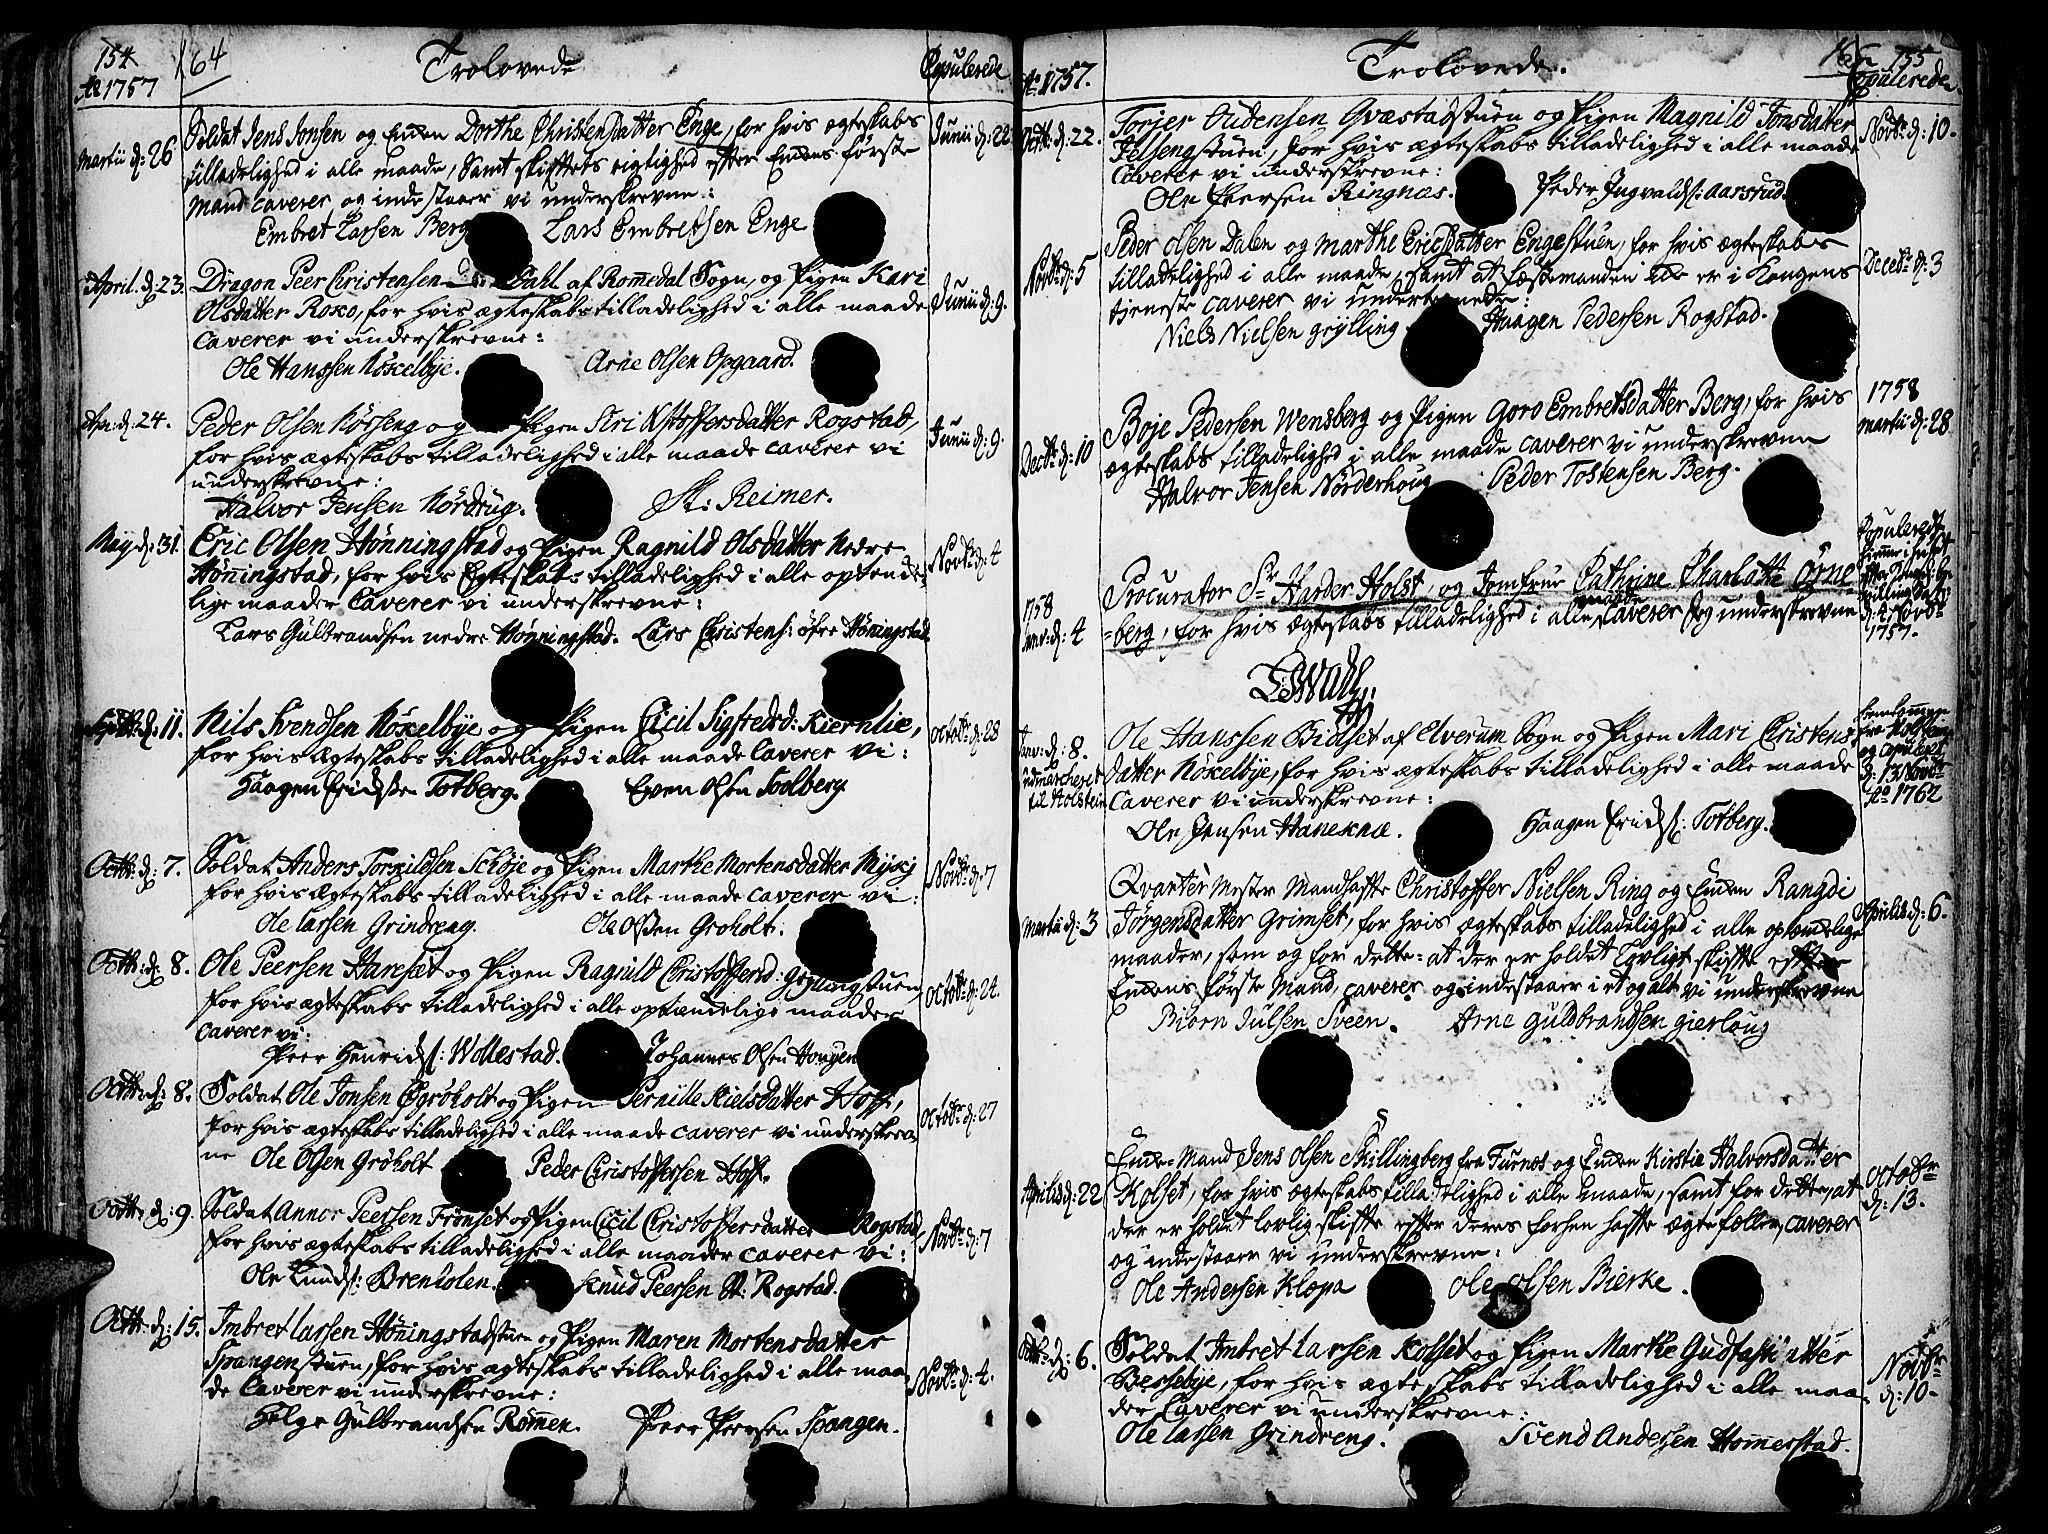 154
164
Trolovede
Copulerede
Ao 1757
Martii d: 26
Soldat Jens Jonsen og Enken Dorthe Christensdatter Enge, for hvis egteskabs
Junii d: 22
tilladelighed i alle maade, samt skifftets rigtighed efter Enkens første
Mand caverer og inde staaer vi underskrevne:
Embret Larsen Berg
Lars Embretsen Enge
April. d: 23.
Dragon Peer Christensen Dahl af Romedal Sogn, og Pigen Kari
Junii d: 9.
Olsdatter Roko, for hvis egteskabs tilladelighed i alle maade
caverer vi underskrevne:
Ole Hanssen Nöxelbÿe.
Arne Olsen Opgaard.
Apr. d: 24.
Peder Olsen Körseng og Pigen Siri Kstoffersdatter Rogstad,
Junii d: 9.
for hvis egteskabs tilladelighed i alle maade caverer vi
underskrevne:
Halvor Jensen Nordrug.
St: Reimer.
Maÿ d: 31.
Eric Olsen Hönningstad og Pigen Ragnild Olsdatter Nedre
Novbr: d: 4
Hönningstad, for hvis Egteskabs tilladelighed i alle optende-
lige maader Caverer vi underskrevne:
Lars Gulbrandsen nedre Hönningstad.
Lars Christens: öfre Höningstad
Septbr: d: 11.
Nils Svendsen Nöxelbÿe og Pigen Cicil Sigfredsd: Kiernlie,
octobr: d: 28
for hvis egteskabs tilladelighed i alle maade Caverer vi:
Haagen Erichsen Totberg.
Even Olsen Sodlberg
Octbr: d: 7.
Soldat Anders Torkildsen Schöje og Pigen Marthe Mortensdatter Mÿkj
Novbr: d: 7
for hvis egteskabs tilladelighed i alle maade caverer vi:
Ole Larsen Grindreng.
Ole Olsen Groholt.
Octbr: d: 8.
Ole Peersen Hareset og Pigen Ragnild Christoffersd: Grÿlingstuen,
octobr: d: 24.
for hvis egteskabs tilladelighed i alle optændelige maader
Caverer vi:
Peer Henrichs: Wollestad.
Johannes Olsen Hougen
Octbr: d: 8.
Soldat Ole Jonsen Gröholt og Pigen Pernille Nielsdatter Hoff,
octobr d: 27
for hvis egteskabs tilladelighed i alle maade caverer vi underskrev-
ne
Ole Olsen Gröholt
Peder Christoffersen Hoff.
Octbr: d: 9.
Soldat Annor Peersen Frönset og Pigen Cicil Christoffersdatter Rogstad
Novbr: d: 7
for hvis egteskabs tilladelighed i alle maader caverer vi:
Ole Knuds: Brenholen.
Knud Peersen St: Rogstad.
Octbr: d: 15.
Imbret Larsen Höningstadstuen og Pigen Maren Mortensdatter
Novbr: d: 4.
Spangenstuen, for hvis egteskabs tilladelighed i alle maa
de Caverer vi underskrevne:
Helge Gulbrandsen Romen.
Peer Peersen Spangen.
155
Trolovede.
Copulerede.
Ao 1757.
Octbr d: 22.
Torjer Oudensen Qvæstadstuen og Pigen Magnild Jonsdatter
Novbr: d: 10.
Jelsengstuen, for hvis egteskabs tilladelighed i alle maade
Caverer vi underskrevne:
Ole Peersen Ringnæs.
Peder Ingvalds: Aarstad.
Novbr: d: 5
Peder Olsen Dalen og Marthe Ericsdatter Engestuen, for hvis egteskabs
Decebr d: 3
tilladelighed i alle maade, samt at fæstemanden er i Kongens
tjeneste caverer vi undertegnede:
Niels Nielsen Grÿlling
Haagen Pedersen Rogstad.
1758
Decbr d: 10
Boje Pedersen Wensberg og Pigen Goro Embretsdatter Berg, for hvis
Martii d: 28
egteskabs tilladelighed i alle maade caverer vi underskrevne
Halvor Jensen Nörderhoug
Peder Tostensen Berg.
1758
Janv: d: 4
Procurator Sr Harder Holst, og Jomfrue Cathrine Charlotte Örne-
berg, for hvis Egteskabs tilladelighed i alle maade Caverer jeg underskrevne
Copulerede
d: 4 Novbr
1757.
Janv: d: 8.
udmarcheret
til Holstein
Ole Hanssen Bidset af Elverum Sogn og Pigen Mari Christens
hiemkommen
fra Holsteen
og copuleret
d: 13 Novbr
Ao 1762
datter Nöxelbÿe, for hvis egteskabs tilladelighed i alle maade
Caverer vi underskrevne:
Ole Jensen Haneknæ.
Haagen Erichs: Totberg.
Martii d: 3
Qvarteer Mester Mandhaffte Christoffer Nielsen Ring og Enken Rangdi
Aprilis d: 6.
Jörgensdatter Grimset, for hvis egteskabs tilladelighed i alle optendelige
maader, som og for dette: at der er holdet lovligt skiffte effter
Enkens förste Mand, caverer og indestaaer i et og alt vi underskrevne
Biörn Julsen Sveen.
Arne Guldbrandsen Gierloug
Aprilis d: 22
Enke-Mand Jens Olsen Skillingberg fra Furnes og Enken Kirstia Halvorsdatter
octobr
d: 13.
Kolset, for hvis egteskabs tilladelighed i alle maade, samt for dette, at
der er holdet lovlig skiffte effter deres forhen haffte egtefæller, caverer
og indestaaer vi underskrevne:
Ole Andersen Klopa
Ole Olsen Bierke.
Octbr: d: 6.
Soldat Imbret Larsen Kolset og Pigen Marthe Gudfastdatter
Novbr
d: 10.
Bessebÿe, for hvis egteskabs tilladelighed i alle maa-
der Caverer vi underskrevne:
Ole Larsen Grindreng.
Svend Andersen Hommerstad.